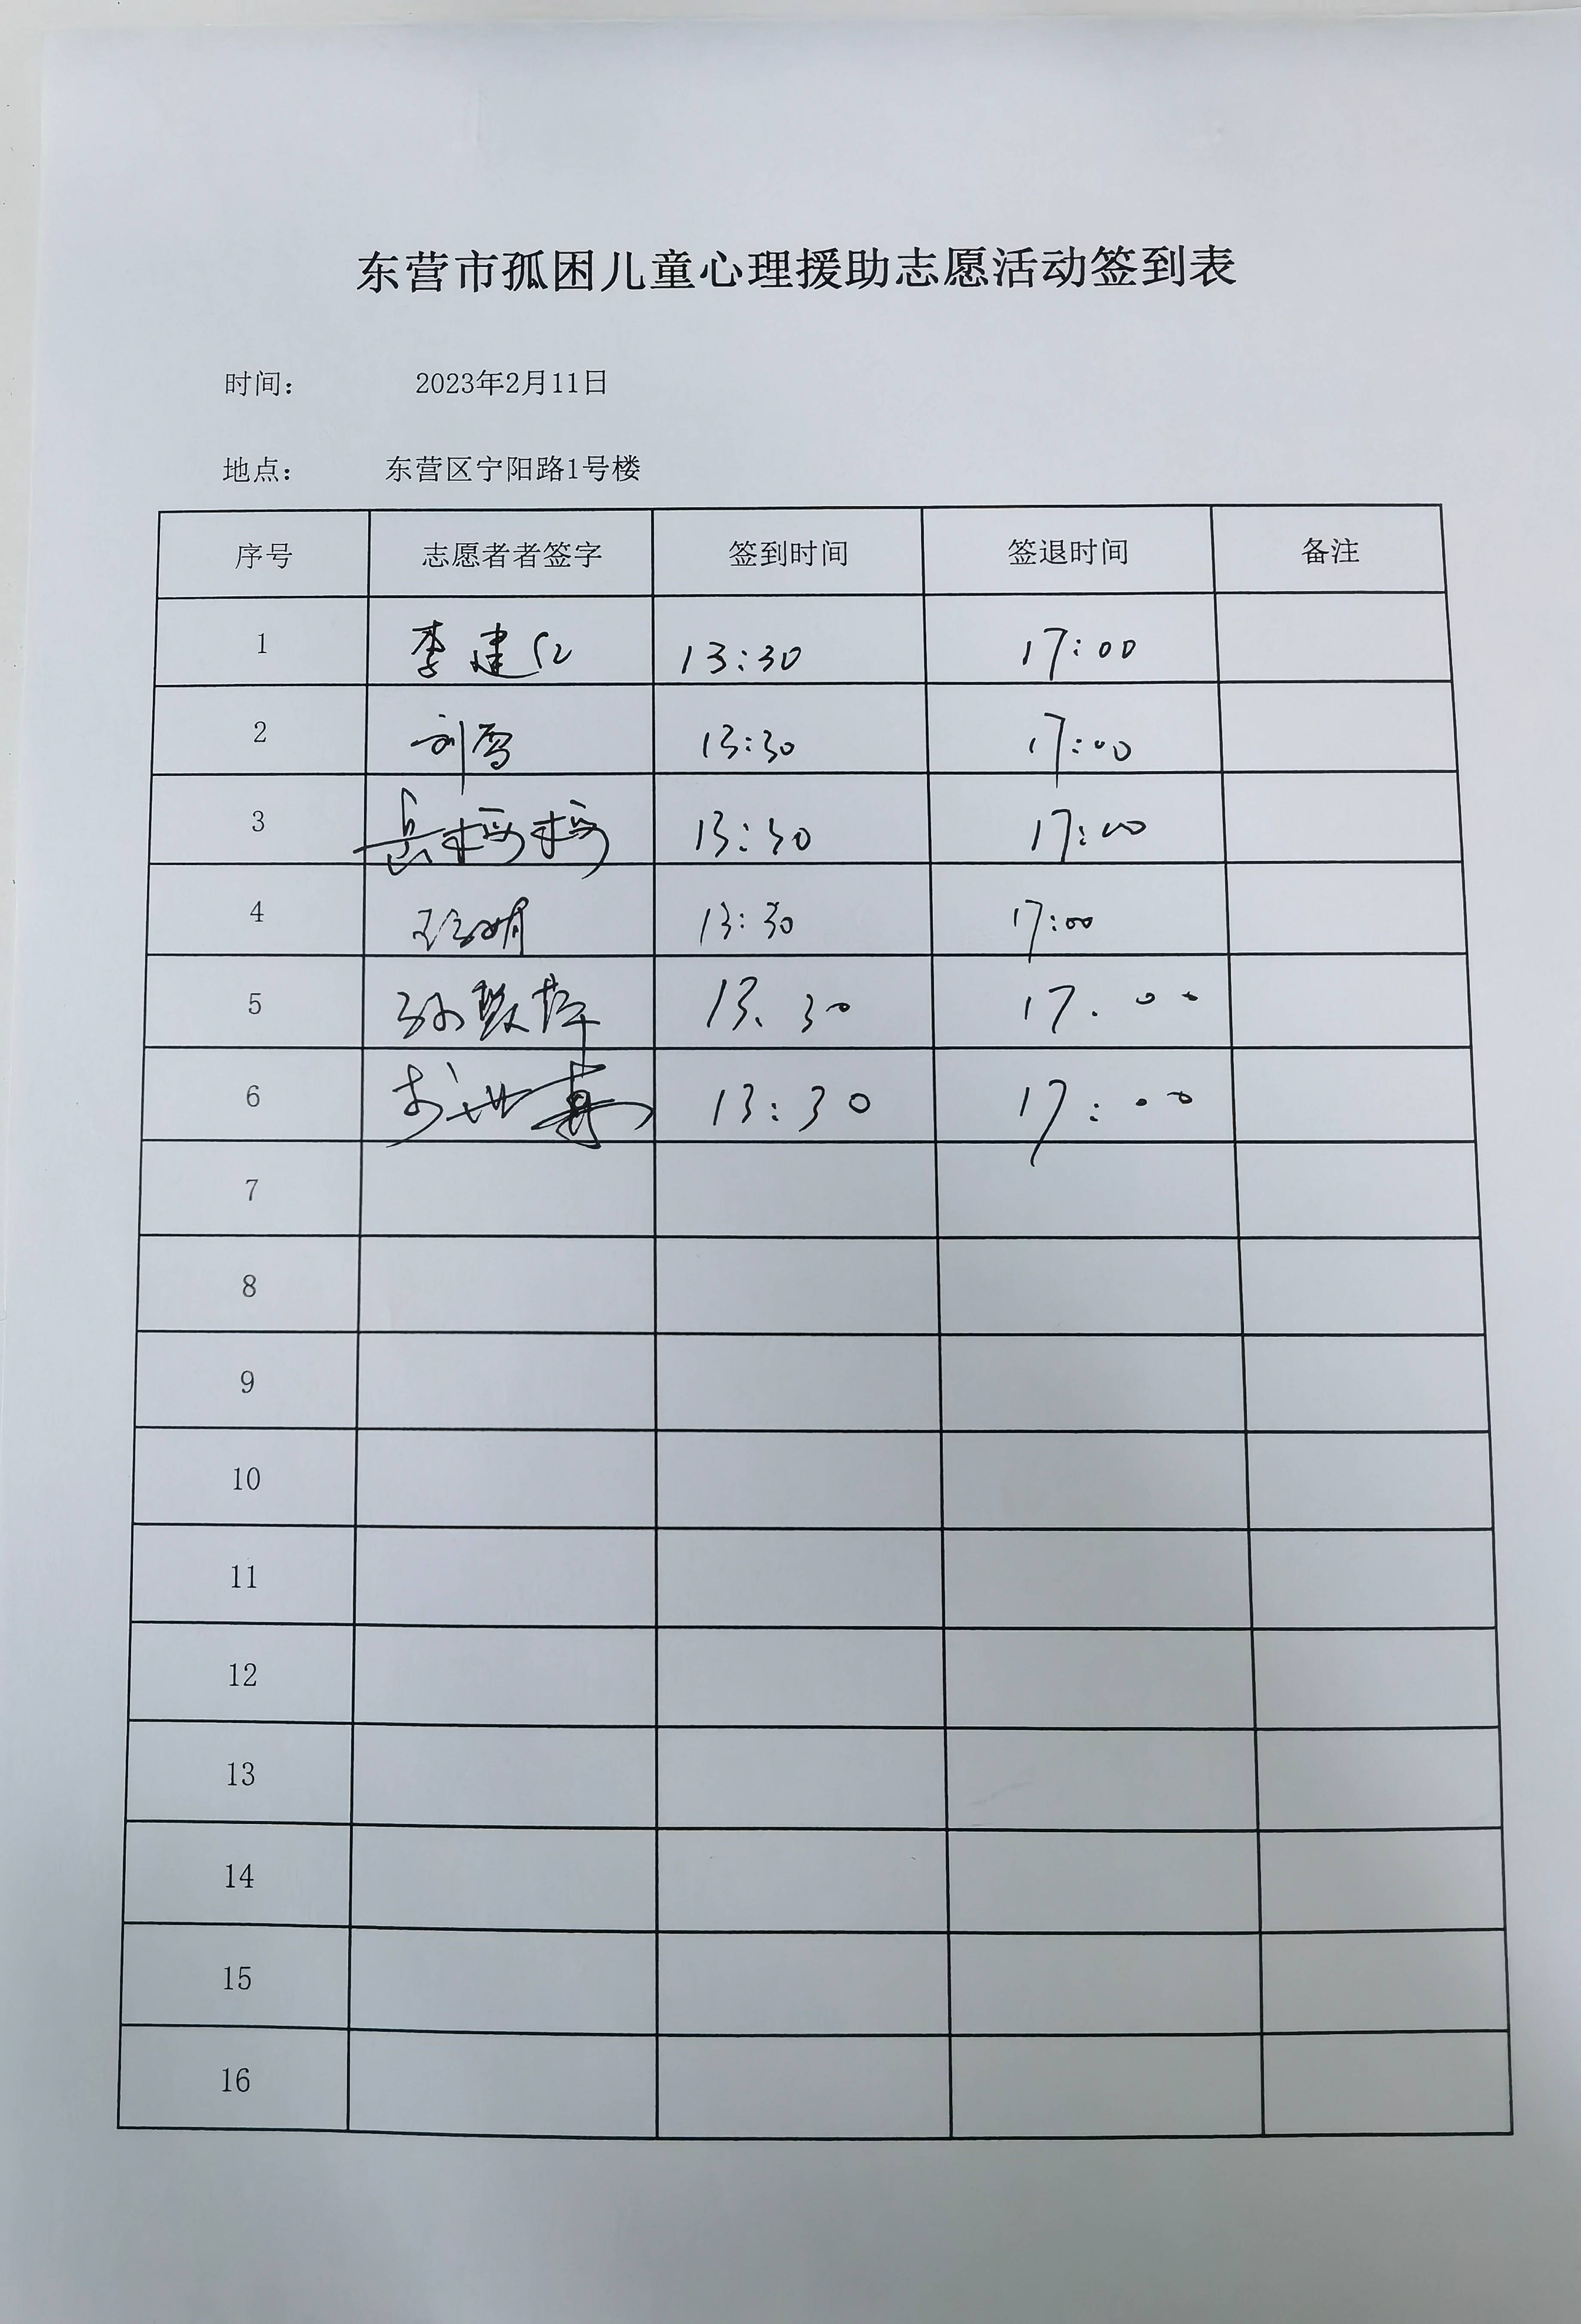 东营市孤困儿童心理援助志愿活动签到表
时间： 2023年2月11日
地点： 东营区宁阳路1号楼
序号 志愿者者签字 签到时间 签退时间 备注
1 李建仁 13:30 17:00
2 刘雪 13:30 17:00
3 岳樱樱 13:30 17:00
4 13:30 17:00
5 孙 13.30 17.00
6 13:30 17:00
7
8
9
10
11
12
13
14
15
16